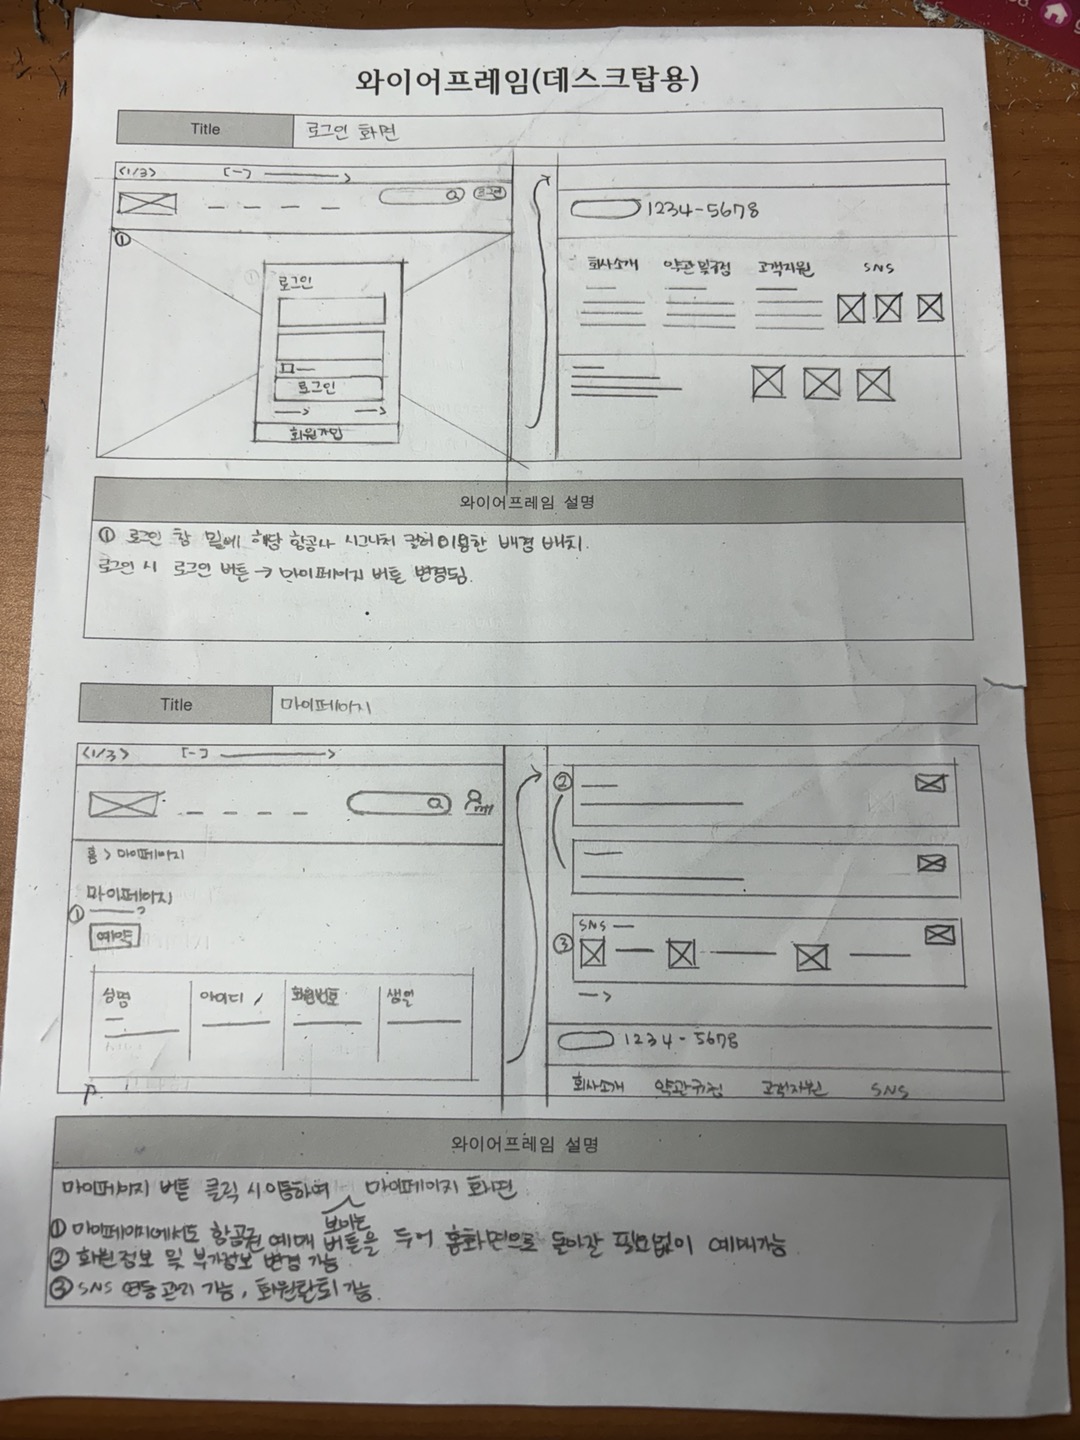 와이어프레임(데스크탑용)
Title 로그인 화면
<1/3> [-]
로그인
①
로그인
로그인
회원가입
1234-5678
회사소개 약관 및 규정 고객지원 SNS
와이어프레임 설명
① 로그인 창 밑에 해당 항공사 시그니처 컬러 이용한 배경 배치.
로그인 시 로그인 버튼 → 마이페이지 버튼 변경됨.
Title 마이페이지
<1/3> [-]
홈 > 마이페이지
마이페이지
①
예약
성명 아이디 회원번호 생일
②
③ SNS
1234-5678
회사소개 약관규정 고객지원 SNS
와이어프레임 설명
마이페이지 버튼 클릭 시 이동하여 보이는 마이페이지 화면
① 마이페이지에서도 항공권 예매 버튼을 두어 홈화면으로 돌아갈 필요없이 예매가능
② 회원정보 및 부가정보 변경 가능
③ SNS 연동관리 가능, 회원탈퇴 가능.